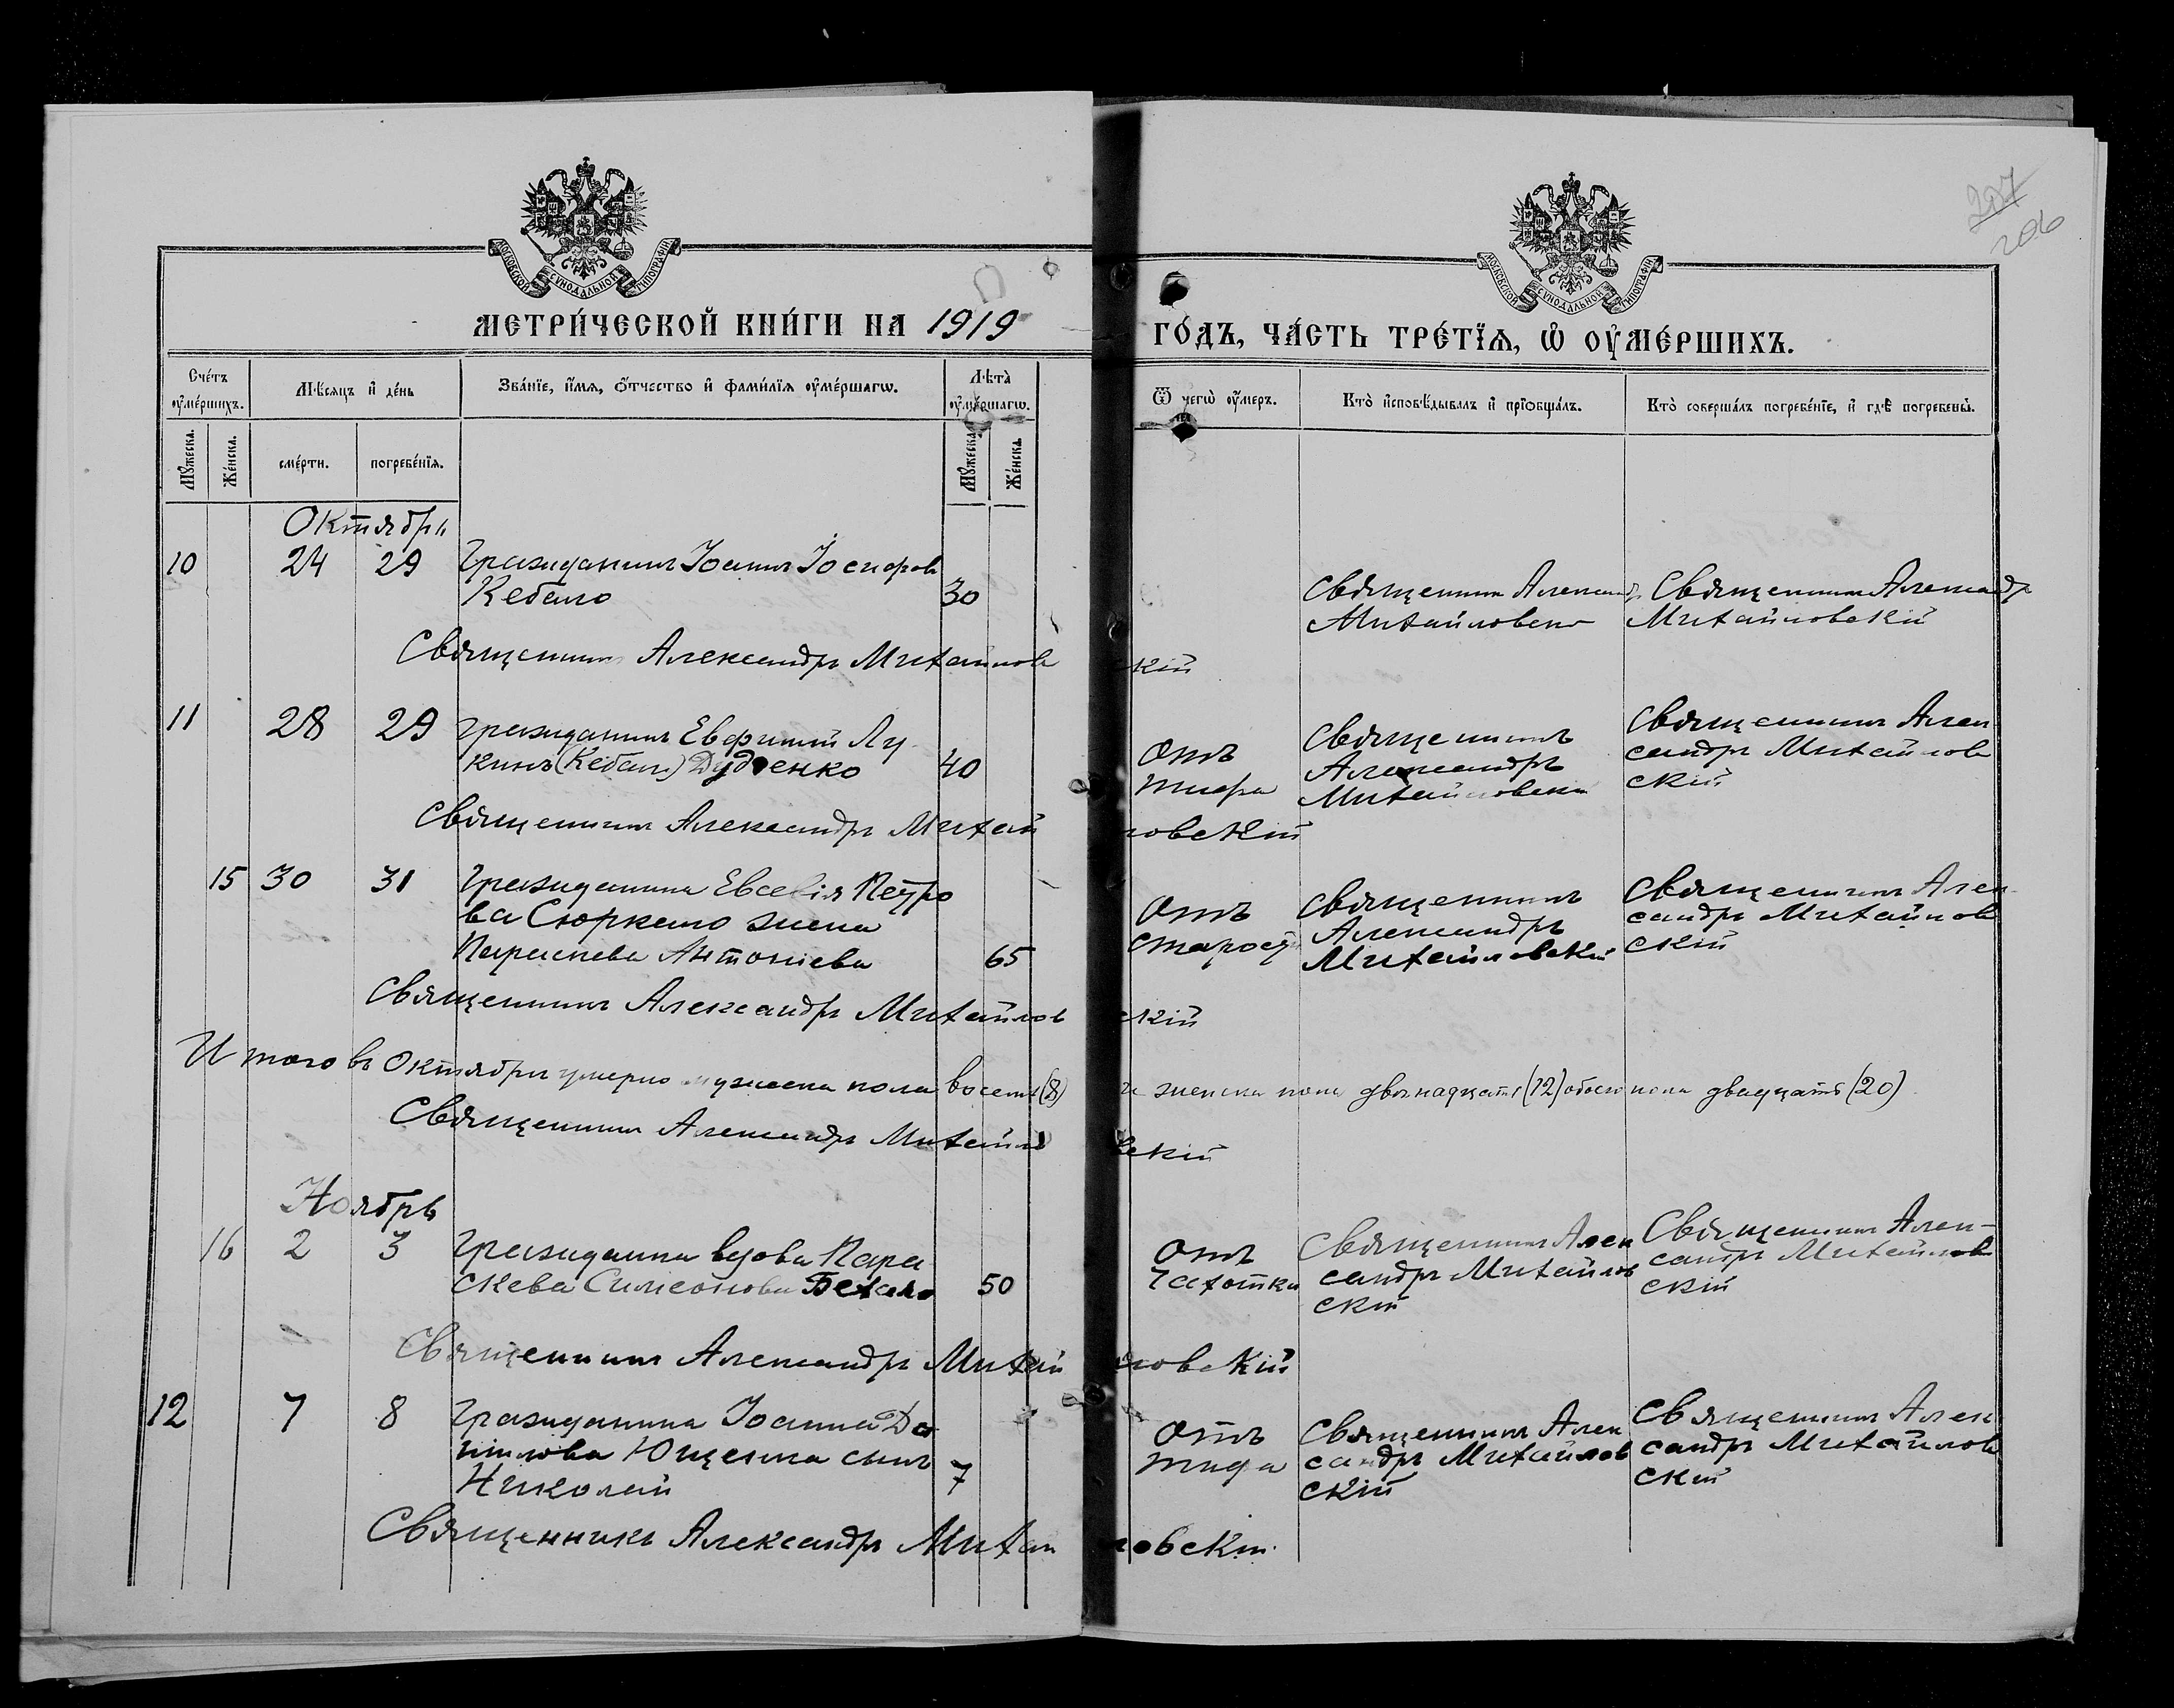 207
206
МОСКОВСКОЙ СѴНОДАЛЬНОЙ ТИПОГРАФІИ
МОСКОВСКОЙ СѴНОДАЛЬНОЙ ТИПОГРАФІИ
МЕТРИ́ЧЕСКОЙ КНИ́ГИ НА 1919 ГО́ДЪ, ЧА́СТЬ ТРЕ́ТЇѦ, Ѡ҆ ОУ҆МЕ́РШИХЪ.
Сче́тъ оу҆ме́ршихъ.
Мѣ́сѧцъ и҆ де́нь
Зва́нїе, и҆́мѧ, ѻ҆́тчество и҆ фами́лїѧ оу҆ме́ршагѡ.
Лѣта̀ оу҆ме́ршагѡ.
Ѿ чегѡ̀ оу҆́меръ.
Кто̀ и҆сповѣ́дывалъ и҆ прїѡбща́лъ.
Кто̀ соверша́лъ погребе́нїе, и҆ гдѣ̀ погребены̀.
Мꙋ́жеска.
Же́нска.
сме́рти.
погребе́нїѧ.
Мꙋ́жеска.
Же́нска.
Октябрь
10 24 29 Гражданинъ Іоаннъ Іосифовъ
Кебало 30
Священникъ Александръ Священникъ Александръ
Михайловскій Михайловскій
Священникъ Александръ Михайловскій
11 28 29 Гражданинъ Евфимій Лу
кинъ (Кебало) Дудченко 40
Отъ
тифа
Священникъ
Александръ
Михайловскій
Священникъ Алек
сандръ Михайлов
скій
Священникъ Александръ Михайловскій
15 30 31 Гражданина Евсевія Петро
ва Сюркало жена
Параскева Антоніева 65
Отъ
старости
Священникъ
Александръ
Михайловскій
Священникъ Алек
сандръ Михайлов
скій
Священникъ Александръ Михайловскій
Итого въ Октябрѣ умерло мужеска пола восемь (8) и женска пола двѣнадцать (12) обоего пола двадцать (20)
Священникъ Александръ Михайловскій
Ноябрь
16 2 3 Гражданка вдова Пара
скева Симеонова Бехало 50
Отъ
чахотки
Священникъ Алек
сандръ Михайлов
скій
Священникъ Алек-
сандръ Михайлов
скій
Священникъ Александръ Михайловскій
12 7 8 Гражданина Іоанна Да
ніилова Ющенка сынъ
Николай 7
Отъ
тифа
Священникъ Алек
сандръ Михайлов
скій
Священникъ Алек
сандръ Михайлов
скій
Священникъ Александръ Михайловскій